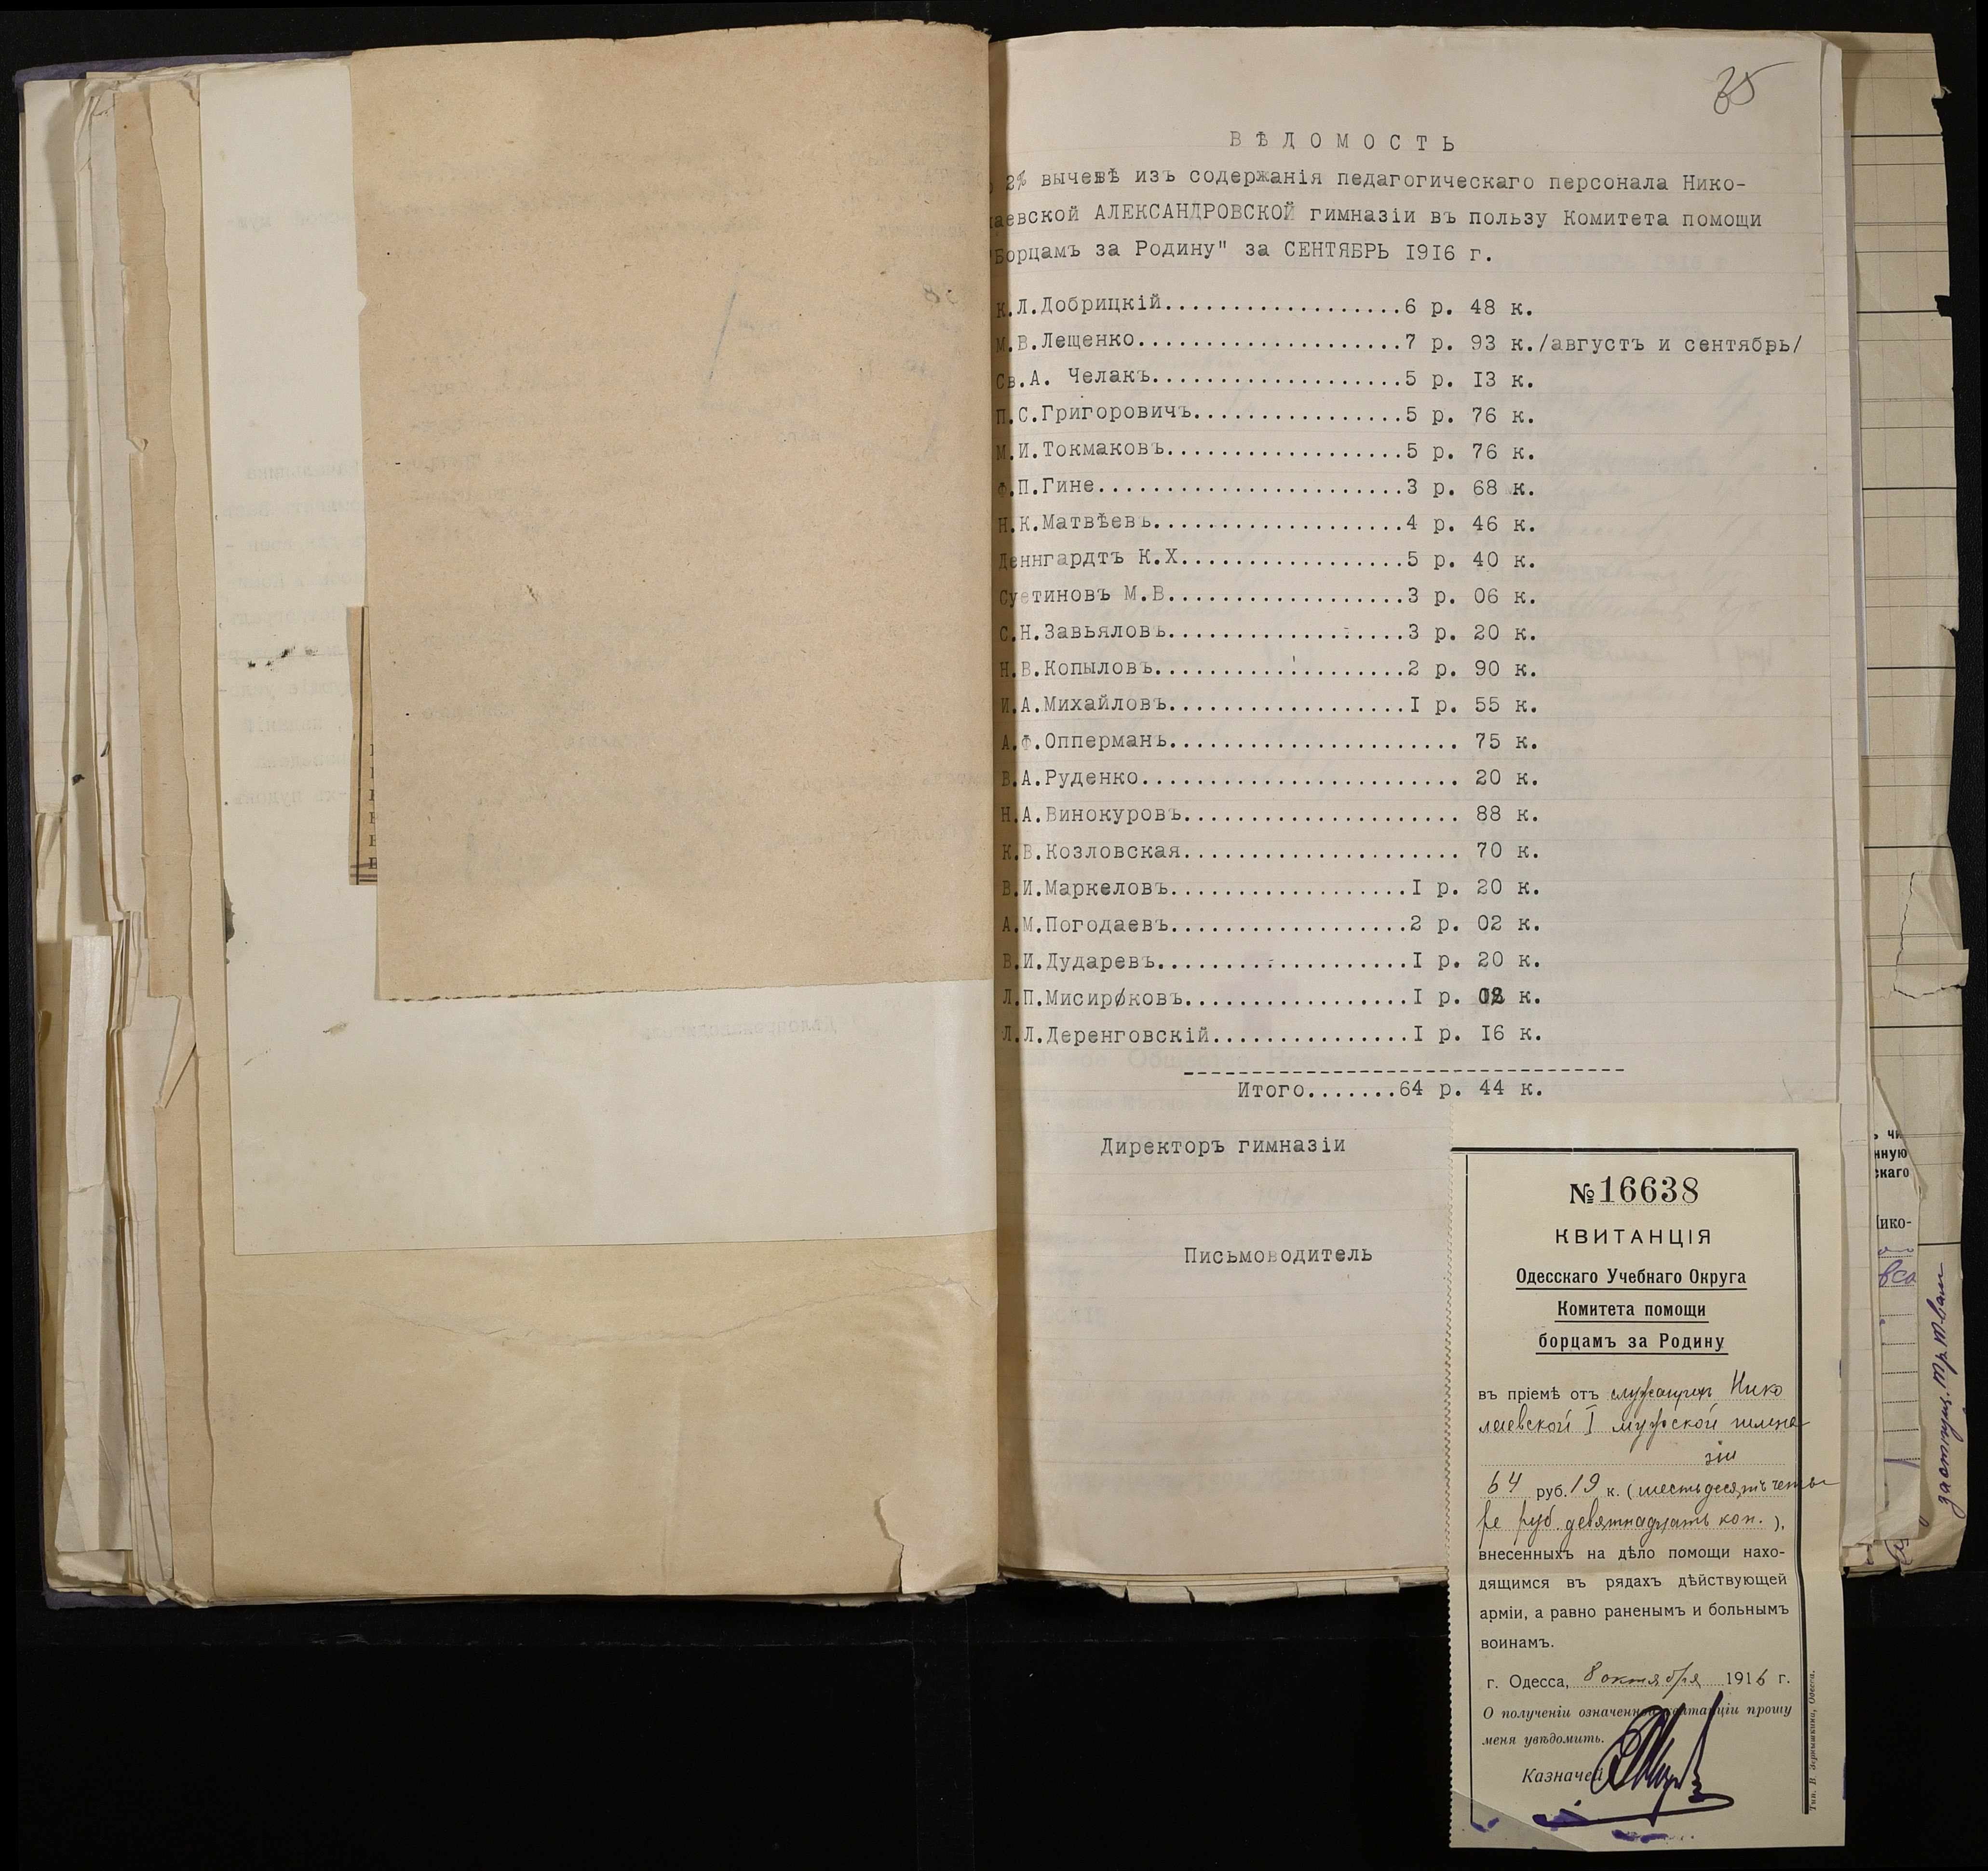 35
ВѢДОМОСТЬ
2% вычетѣ изъ содержанія педагогическаго персонала Нико-
лаевской АЛЕКСАНДРОВСКОЙ гимназіи въ пользу Комитета помощи
"Борцамъ за Родину" за СЕНТЯБРЬ I9I6 г.
К.Л.Добрицкій..................6 р. 48 к.
М.В.Лещенко....................7 р. 93 к./августъ и сентябрь/
Св.А. Челакъ...................5 р. I3 к.
П.С.Григоровичъ................5 р. 76 к.
М.И.Токмаковъ..................5 р. 76 к.
Ф.П.Гине.......................3 р. 68 к.
Н.К.Матвѣевъ...................4 р. 46 к.
Деннгардтъ К.Х.................5 р. 40 к.
Суетиновъ М.В..................3 р. 06 к.
С.Н.Завьяловъ..................3 р. 20 к.
Н.В.Копыловъ...................2 р. 90 к.
И.А.Михайловъ..................I р. 55 к.
А.Ф.Опперманъ...................... 75 к.
В.А.Руденко........................ 20 к.
Н.А.Винокуровъ..................... 88 к.
К.В.Козловская..................... 70 к.
В.И.Маркеловъ..................I р. 20 к.
А.М.Погодаевъ..................2 р. 02 к.
В.И.Дударевъ...................I р. 20 к.
Л.П.Мисирковъ.................I р. к.
Л.Л.Деренговскій...............I р. I6 к.
Итого.......64 р. 44 к.
Директоръ гимназіи
Письмоводитель
№ 16638
КВИТАНЦІЯ
Одесскаго Учебнаго Округа
Комитета помощи
борцамъ за Родину
въ пріемѣ отъ служащихъ Нико
лаевской I мужской гимна
зіи
64 руб. 19 к. (шестьдесятъ четы
ре руб. девятнадцать коп.),
внесенныхъ на дѣло помощи нахо-
дящимся въ рядахъ дѣйствующей
арміи, а равно раненымъ и больнымъ
воинамъ.
г. Одесса, 8 октября 1916 г.
О полученіи означенной квитанціи прошу
меня увѣдомить.
Казначей
Тип. В. Зернышкина, Одесса.
нную
скаго
Нико-